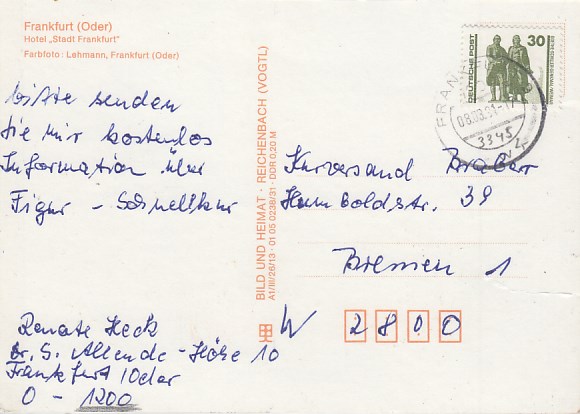 Frankfurt (Oder)
Hotel „Stadt Frankfurt“
Farbfoto: Lehmann, Frankfurt (Oder)
bitte senden
Sie mir kostenlos
Information über
Figur - Schnellkur
Renate Heck
Dr. S. Allende-Höhe 10
Frankfurt/Oder
O - 1200
BILD UND HEIMAT · REICHENBACH (VOGTL)
A1/III/26/13 · 01 05 0238/31 · DDR 0,20 M
DEUTSCHE POST
30
08.03.91-17
3345
Kurversand
Humboldstr. 39
Bremen 1
W 2800